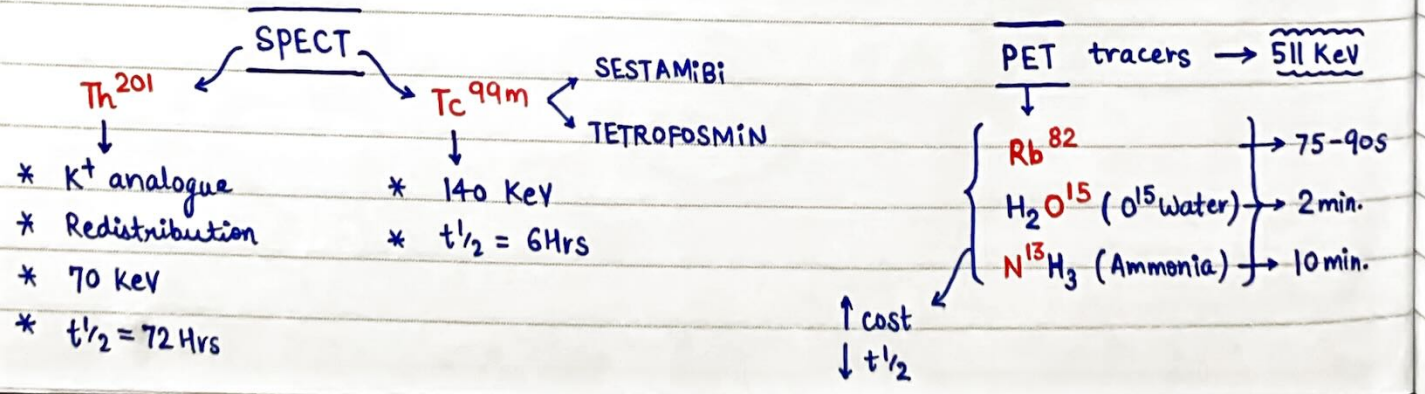 SPECT
Th²⁰¹
* K⁺ analogue
* Redistribution
* 70 KeV
* t½ = 72 Hrs
Tc⁹⁹ᵐ
SESTAMiBi
TETROFOSMiN
* 140 KeV
* t½ = 6Hrs
PET tracers → 511 KeV
Rb⁸² → 75-90s
H₂O¹⁵ (O¹⁵ Water) → 2 min.
N¹³H₃ (Ammonia) → 10 min.
↑ cost
↓ t½